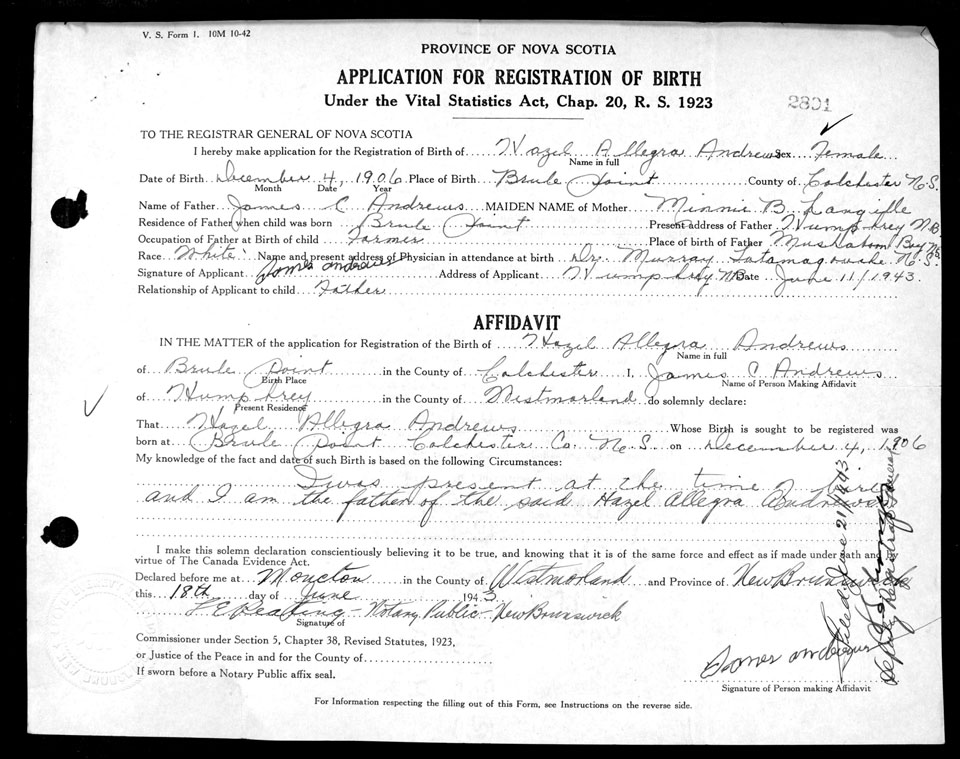 V. S. Form 1. 10M 10-42
PROVINCE OF NOVA SCOTIA
APPLICATION FOR REGISTRATION OF BIRTH
Under the Vital Statistics Act, Chap. 20, R. S. 1923
2801
TO THE REGISTRAR GENERAL OF NOVA SCOTIA
I hereby make application for the Registration of Birth of Hazel Allegra Andrews Sex Female
Name in full
Date of Birth December 4, 1906 Place of Birth Brule Point County of Colchester N.S.
Month Date Year
Name of Father James C Andrews MAIDEN NAME of Mother Minnie B. Langille
Residence of Father when child was born Brule Point Present address of Father Humphrey N.B
Occupation of Father at Birth of child Farmer Place of birth of Father
Race White Name and present address of Physician in attendance at birth Dr. Murray Tatamagouche N.S.
Signature of Applicant James Andrews Address of Applicant Humphrey NB Date June 11/1943.
Relationship of Applicant to child Father
AFFIDAVIT
IN THE MATTER of the application for Registration of the Birth of Hazel Allegra Andrews
Name in full
of Brule Point in the County of Colchester I, James C Andrews
Birth Place Name of Person Making Affidavit
of Humphrey in the County of Westmorland do solemnly declare:
Present Residence
That Hazel Allegra Andrews Whose Birth is sought to be registered was
born at Brule Point Colchester Co. N.S. on December 4, 1906
My knowledge of the fact and date of such Birth is based on the following Circumstances:
I was present at the time
and I am the father of the said Hazel Allegra Andrews
I make this solemn declaration conscientiously believing it to be true, and knowing that it is of the same force and effect as if made under oath and in
virtue of The Canada Evidence Act.
Declared before me at Moncton in the County of Westmorland and Province of New Brunswick
this 18th day of June 1943
L E Keating - Notary Public - New Brunswick
Signature of
Commissioner under Section 5, Chapter 38, Revised Statutes, 1923,
or Justice of the Peace in and for the County of
If sworn before a Notary Public affix seal.
James Andrews
Signature of Person making Affidavit
For Information respecting the filling out of this Form, see Instructions on the reverse side.
Filed June 21/1943
Deputy Registrar General